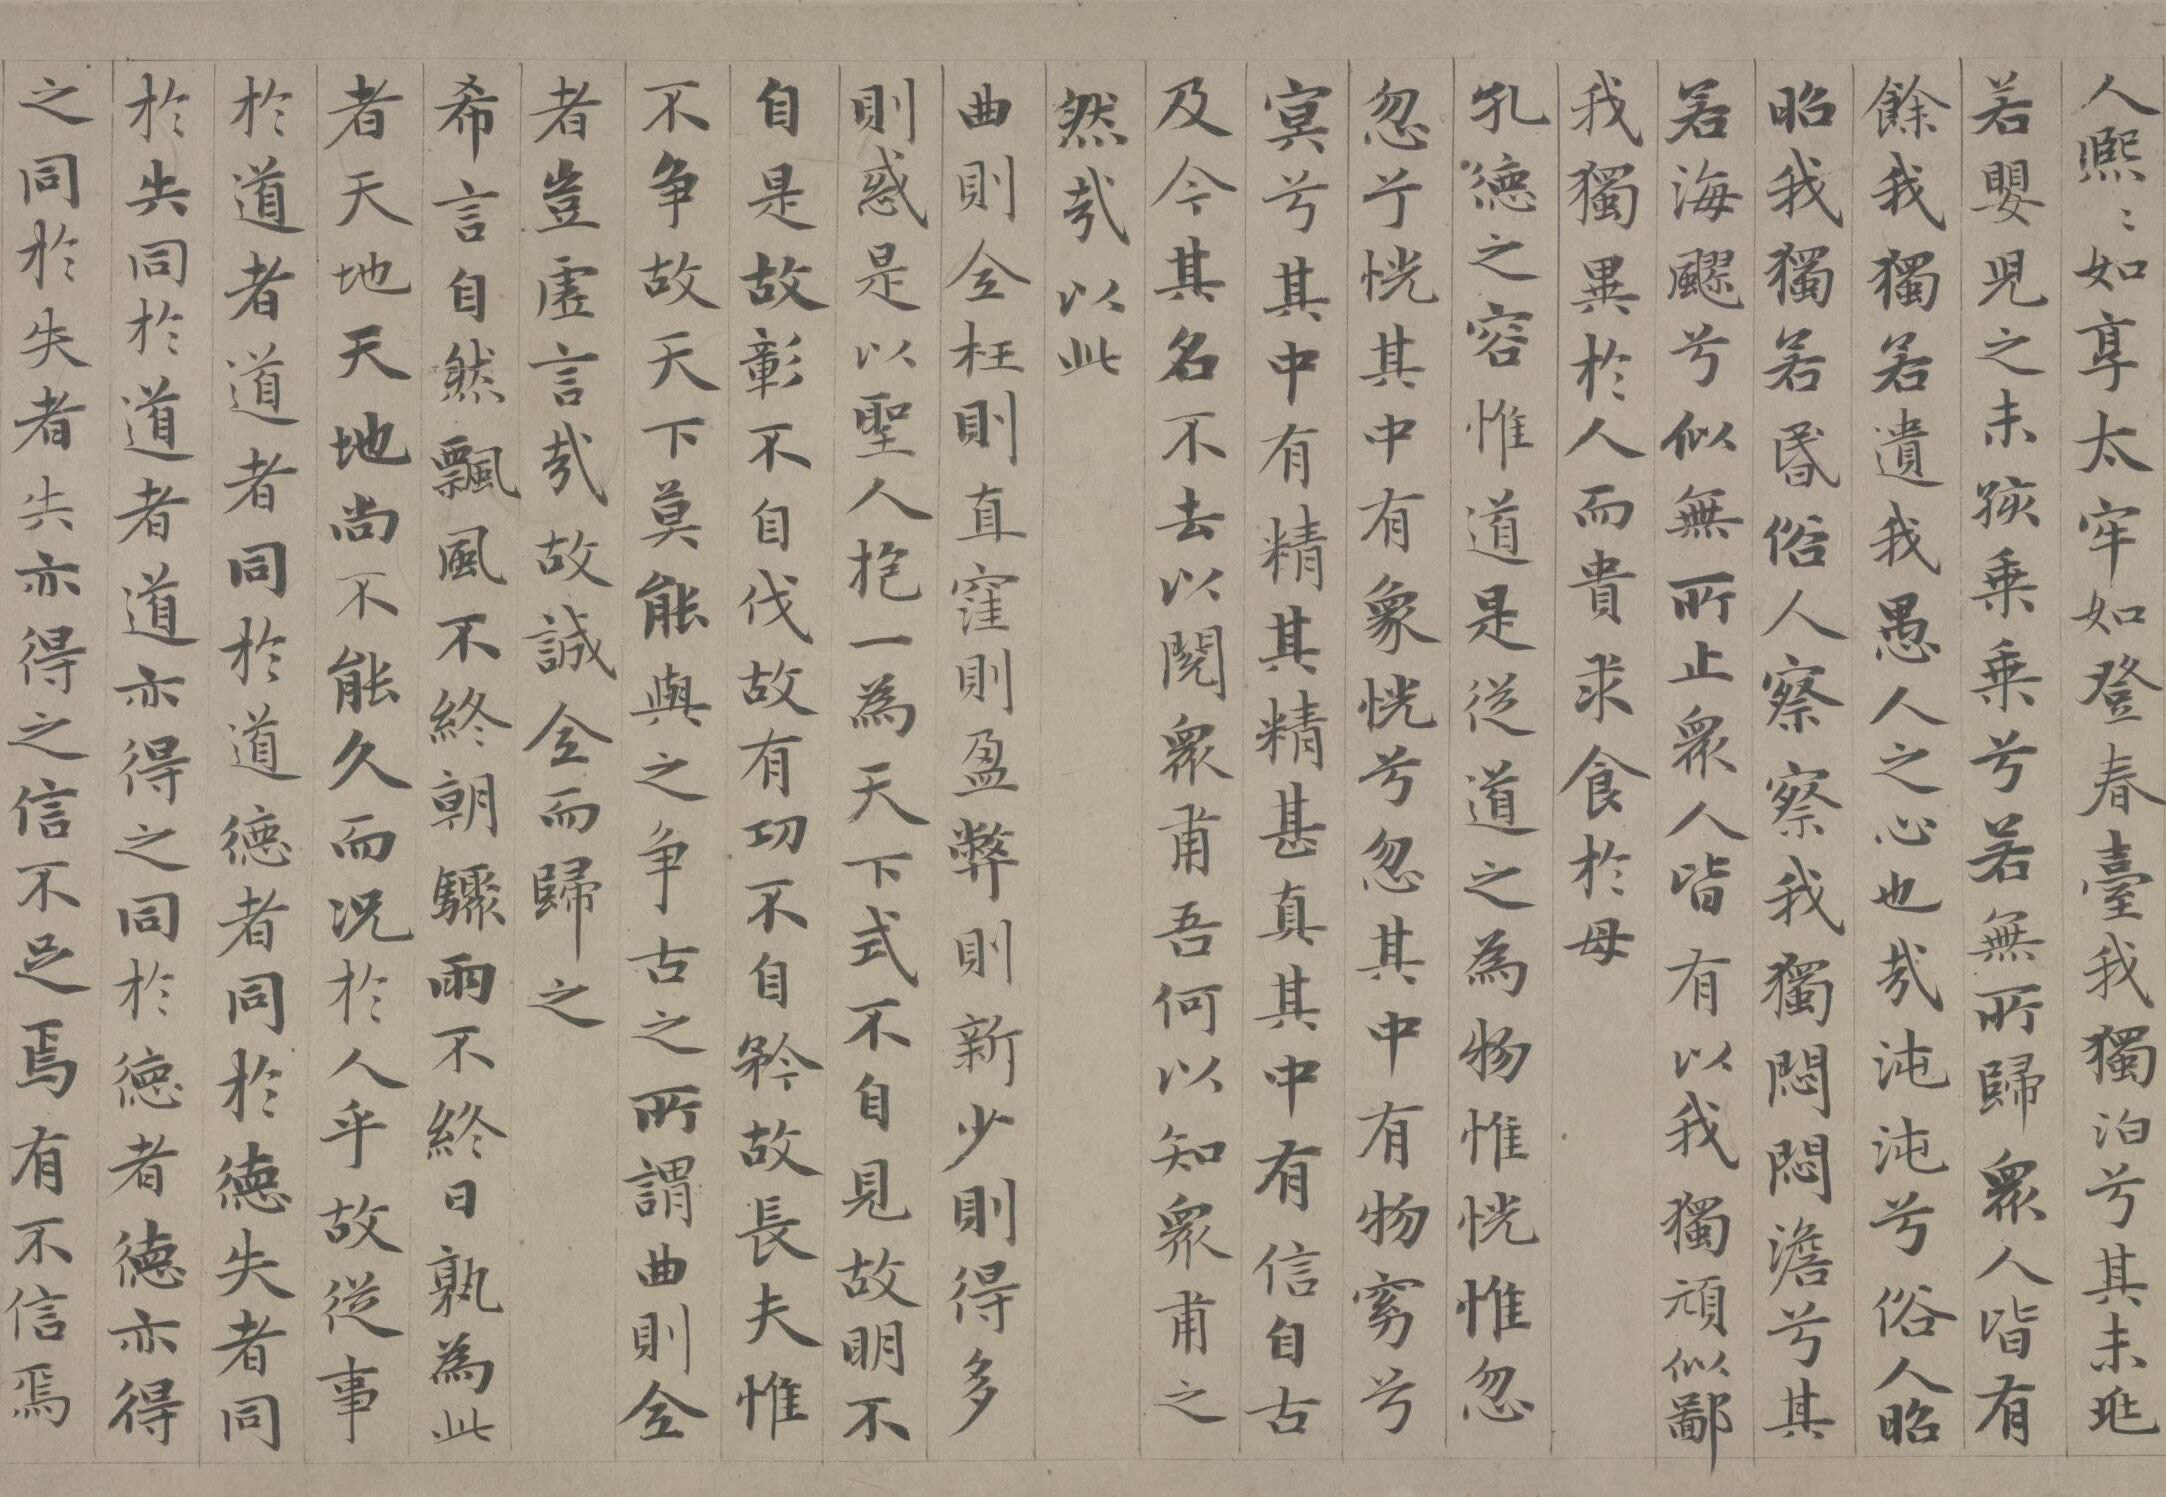 人熙〻如享太牢如登春臺我獨泊兮其未兆
若嬰兒之未孩乘乘兮若無所歸眾人皆有
餘我獨若遺我愚人之心也㢤沌沌兮俗人昭
昭我獨若昏俗人察察我獨悶悶澹兮其
若海飂兮似無所止眾人皆有以我獨頑似鄙
我獨異於人而貴求食於母
孔德之容惟道是從道之為物惟恍惟忽
忽兮恍其中有象恍兮忽其中有物窈兮
冥兮其中有精其精甚真其中有信自古
及今其名不去以閱眾甫吾何以知眾甫之
然㢤以此
曲則全枉則直窪則盈弊則新少則得多
則惑是以聖人抱一為天下式不自見故明不
自是故彰不自伐故有功不自矜故長夫惟
不爭故天下莫能與之爭古之所謂曲則全
者豈虛言㢤故誠全而歸之
希言自然飄風不終朝驟雨不終日孰為此
者天地天地尚不能久而況於人乎故從事
於道者道者同於道德者同於德失者同
於失同於道者道亦得之同於德者德亦得
之同於失者失亦得之信不足焉有不信焉